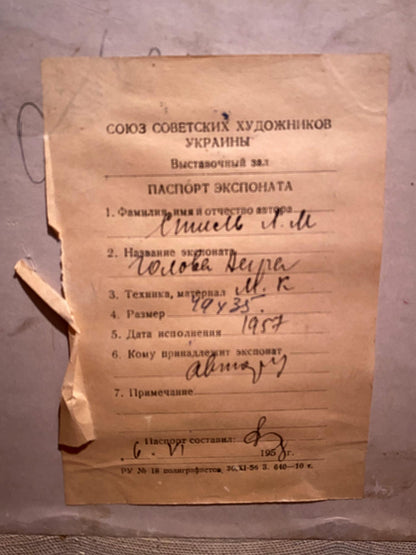 СОЮЗ СОВЕТСКИХ ХУДОЖНИКОВ
УКРАИНЫ
Выставочный зал
ПАСПОРТ ЭКСПОНАТА
1. Фамилия, имя и отчество автора
Стиль Л. М
2. Название экспоната
Голова Негра
3. Техника, материал М. К
4. Размер 49 х 35.
5. Дата исполнения 1957
6. Кому принадлежит экспонат
автору
7. Примечание
Паспорт составил:
6. VI 1957 г.
РУ № 18 полиграфистов, 30.XI-56 З. 640—10 к.